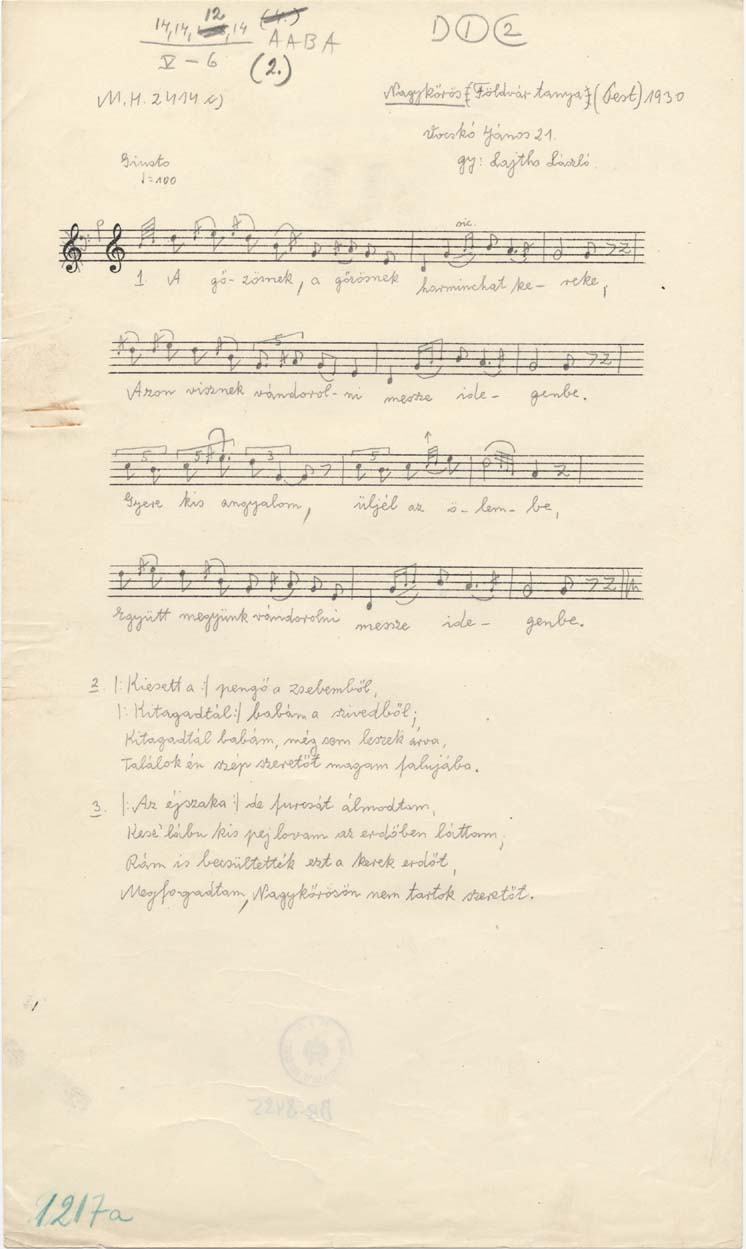 14, 14, 12, 14 (4.) A A B A D 1 2
V – 6 (2.)
M.H. 2414 c) Nagykőrös [Földvár tanya] (Pest) 1930
János 21.
Giusto gy: Lajtha László.
♩=100
sic.
1. A gő-zösnek, a gőzösnek harminchat ke-reke,
5
Azon visznek vándorol-ni messze ide-genbe.
5 5 3 5
Gyere kis angyalom, üljél az ö-lem-be,
Együtt megyünk vándorolni messze ide-genbe.
2. |: Kiesett a :| pengő a zsebemből,
|: Kitagadtál :| babám a szivedből;
Kitagadtál babám, még som leszek árva,
Találok én szép szeretőt magam falujába.
3. |: Az éjszaka :| de furcsát álmodtam,
Kesé lábu kis pejlovam az erdőben láttam,
Rám is becsültették ezt a kerek erdőt,
Megfogadtam, Nagykőrösön nem tartok szeretőt.
1217a